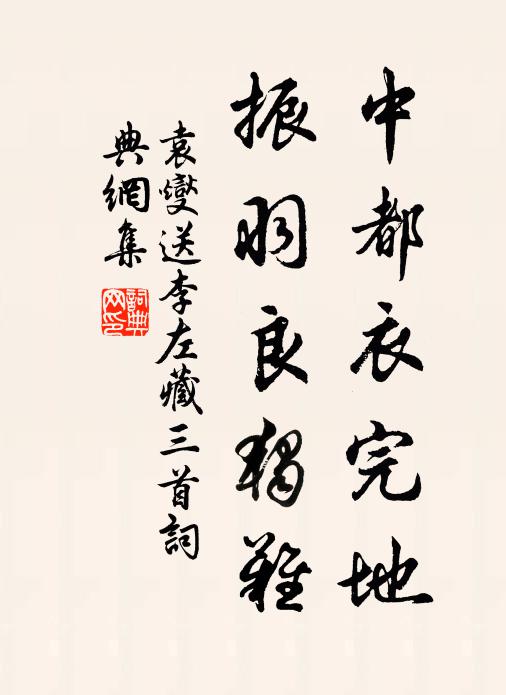 中都衣完地
振羽良独難
袁燮送李左藏三首詞
典網集
詞典
网印